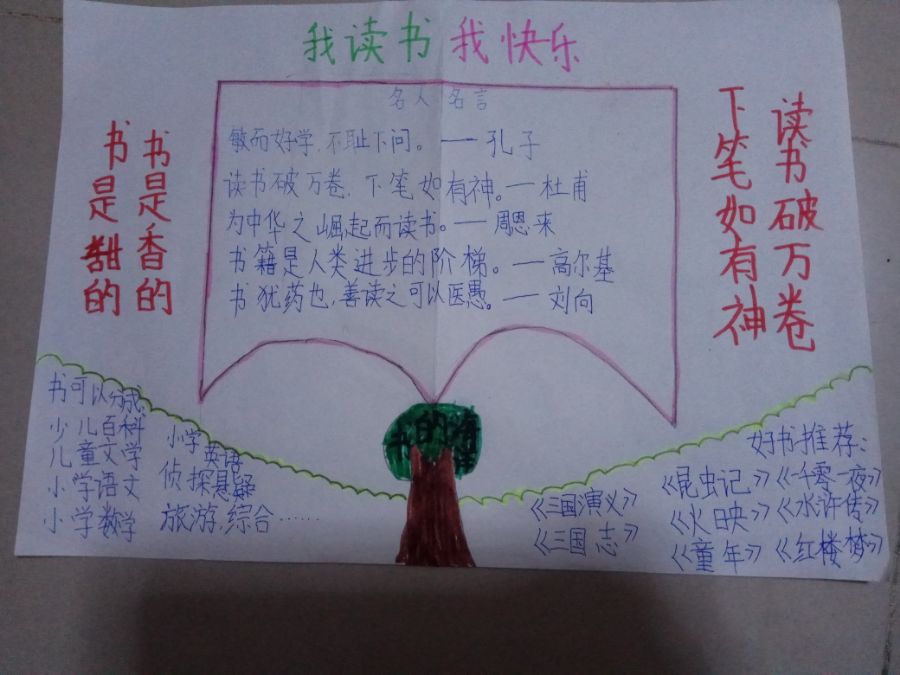 我读书 我快乐
名人名言
敏而好学,不耻下问。——孔子
读书破万卷,下笔如有神。——杜甫
为中华之崛起而读书。——周恩来
书籍是人类进步的阶梯。——高尔基
书犹药也,善读之可以医愚。——刘向
书是香的
书是甜的
读书破万卷
下笔如有神
书可以分成:
少儿百科
儿童文学
小学语文
小学数学
小学英语
侦探悬疑
旅游,综合……
书的海洋
好书推荐:
《昆虫记》《一千零一夜》
《三国演义》《火印》《水浒传》
《三国志》《童年》《红楼梦》